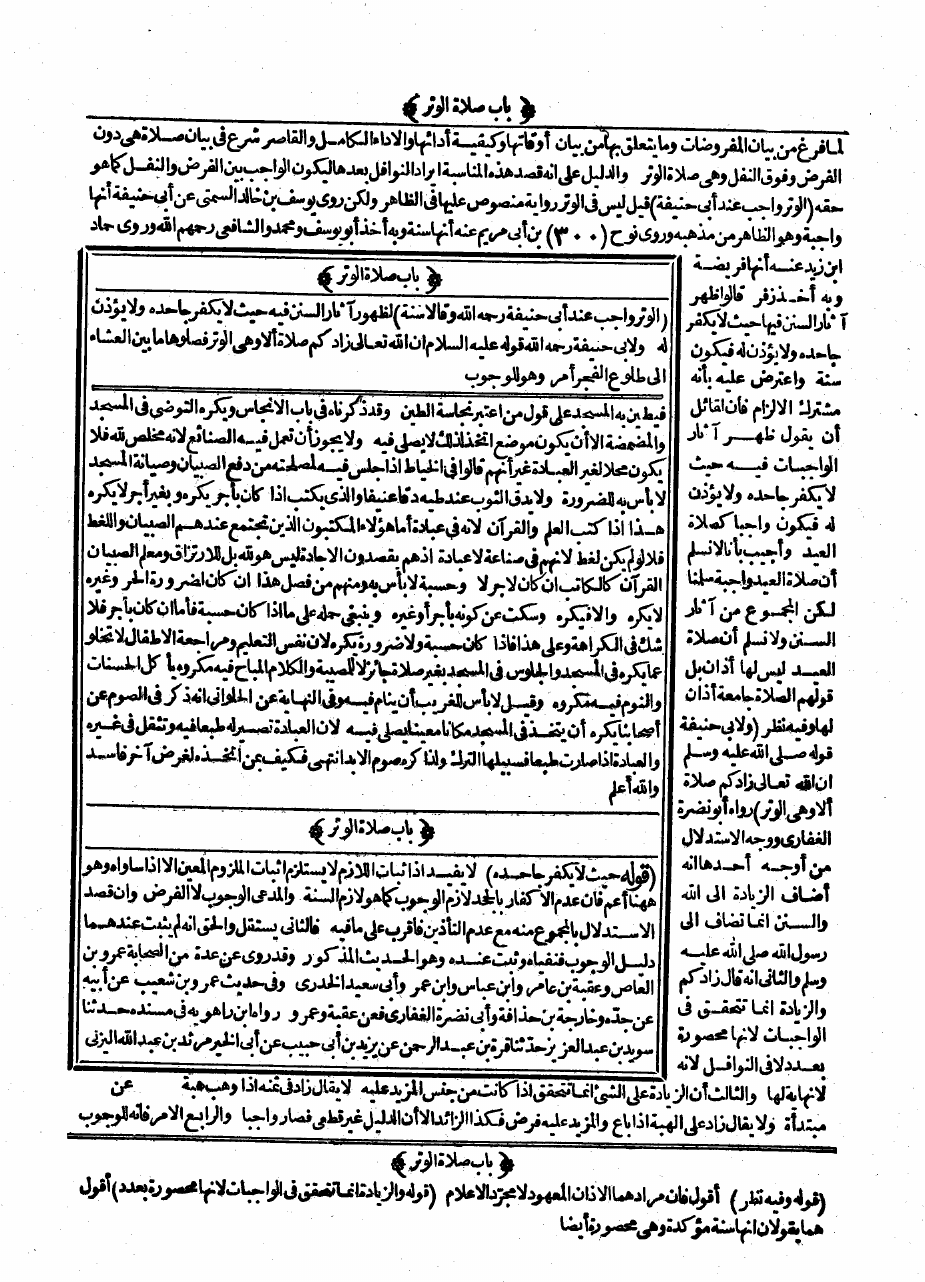 ﴿ باب صلاة الوتر ﴾
لما فرغ من بيان المفروضات وما يتعلق بها من بيان أوقاتها وكيفية أدائها والاداء الكامل والقاصر شرع في بيان صلاة هي دون
الفرض وفوق النفل وهي صلاة الوتر والدليل على انه قصد هذه المناسبة ايراد النوافل بعدها ليكون الواجب بين الفرض والنفل كما هو
حقه (الوتر واجب عند أبى حنيفة) قيل ليس فى الوتر رواية منصوص عليها فى الظاهر ولكن روى يوسف بن خالد السمتى عن أبى حنيفة أنها
واجبة وهو الظاهر من مذهبه وروى نوح (٣٠٠) بن أبى مريم عنه أنها سنة وبه أخذ أبو يوسف ومحمد والشافعى رحمهم الله وروى حماد
ابن زيد عنه أنها فريضة
وبه أخذ زفر قالوا ظهر
آثار السنن فيها حيث لا يكفر
جاحده ولا يؤذن له فيكون
سنة واعترض عليه بأنه
مشترك الالزام فان لقائل
أن يقول ظهر آثار
الواجبات فيه حيث
لا يكفر جاحده ولا يؤذن
له فيكون واجبا كصلاة
العيد وأجيب بأنا لانسلم
أن صلاة العيد واجبة سلمنا
لكن المجموع من آثار
السنن ولا نسلم أن صلاة
العيد ليس لها أذان بل
قولهم الصلاة جامعة أذان
لها وفيه نظر (ولابى حنيفة
قوله صلى الله عليه وسلم
ان الله تعالى زادكم صلاة
ألا وهى الوتر) رواه أبو نضرة
الغفارى ووجه الاستدلال
من أوجه أحدها انه
أضاف الزيادة الى الله
والسنن انما تضاف الى
رسول الله صلى الله عليه
وسلم والثانى انه قال زادكم
والزيادة انما تتحقق فى
الواجبات لانها محصورة
بعدد لا فى النوافل لانه
لانهاية لها والثالث أن الزيادة على الشئ انما تحقق اذا كانت من جنس المزيد عليه لا يقال زاد فى ثمنه اذا وهب هبة عن
مبتدأة ولا يقال زاد على الهبة اذا باع والمزيد عليه فرض فكذا الزائد الا أن الدليل غير قطعى فصار واجبا والرابع الامر فانه للوجوب
﴿ باب صلاة الوتر ﴾
(الوتر واجب عند أبى حنيفة رحمه الله وقالا سنة) لظهور آثار السنن فيه حيث لا يكفر جاحده ولا يؤذن
له ولابى حنيفة رحمه الله قوله عليه السلام ان الله تعالى زادكم صلاة ألا وهى الوتر فصلوها ما بين العشاء
الى طلوع الفجر أمر وهو للوجوب
فيطين به المسجد على قول من اعتبر نجاسة الطين وقد ذكرناه فى باب الانجاس ويكره التوضى فى المسجد
والمضمضة الا أن يكون موضع اتخذ لذلك لا يصلى فيه ولا يجوز أن تعمل فيه الصنائع لانه مخلص لله فلا
يكون محلا لغير العبادة غير أنهم قالوا فى الخياط اذا جلس فيه لمصلحته من دفع الصبيان وصيانة المسجد
لا بأس به للضرورة ولا يدق الثوب عند طيه دقا عنيفا والذى يكتب اذا كان بأجر يكره وبغير أجر لا يكره
هذا اذا كتب العلم والقرآن لانه فى عبادة أما هؤلاء المكتبون الذين تجتمع عندهم الصبيان واللغط
فلا لو لم يكن لغط لانهم فى صناعة لا عبادة اذ هم يقصدون الاجادة ليس هو لله بل للارتزاق ومعلم الصبيان
القرآن كالكاتب ان كان لاجر لا وحسبة لا بأس به ومنهم من فصل هذا ان كان لضرورة الحر وغيره
لا يكره والا فيكره وسكت عن كونه بأجر أو غيره وينبغى حمله على ما اذا كان حسبة فأما ان كان بأجر فلا
شك فى الكراهة وعلى هذا فاذا كان حسبة ولا ضرورة يكره لان نفس التعليم ومراجعة الاطفال لا تخلو
عما يكره فى المسجد والجلوس فى المسجد بغير صلاة جائز لا للمصيبة والكلام المباح فيه مكروه يأكل الحسنات
والنوم فيه مكروه وقيل لا بأس للغريب أن ينام فيه وفى النهاية عن الحلوانى انه ذكر فى الصوم عن
أصحابنا يكره أن يتخذ فى المسجد مكانا معينا يصلى فيه لان العبادة تصير له طبعا فيه وتثقل فى غيره
والعبادة اذا صارت طبعا فسبيلها الترك ولذا كره صوم الابد انتهى فكيف بمن اتخذه لغرض آخر فاسد
والله أعلم
﴿ باب صلاة الوتر ﴾
(قوله حيث لا يكفر جاحده) لا يفيد اذ اثبات اللازم لا يستلزم اثبات الملزوم المعين الا اذا ساواه وهو
ههنا أعم فان عدم الاكفار بالجحد لازم الوجوب كما هو لازم السنة والمدعى الوجوب لا الفرض وان قصد
الاستدلال بالمجموع منه مع عدم التأذين فأقرب على ما فيه فالثانى يستقل والحق انه لم يثبت عندهما
دليل الوجوب فنفياه وثبت عنده وهو الحديث المذكور وقد روى عن عدة من الصحابة عمرو بن
العاص وعقبة بن عامر وابن عباس وابن عمر وأبى سعيد الخدرى وفى حديث عمرو بن شعيب عن أبيه
عن جده وخارجة بن حذافة وأبى نضرة الغفارى فعن عقبة وعمرو رواه ابن راهويه فى مسنده حدثنا
سويد بن عبد العزيز حدثنا قرة بن عبد الرحمن عن يزيد بن أبى حبيب عن أبى الخير مرثد بن عبد الله اليزنى
﴿ باب صلاة الوتر ﴾
(قوله وفيه نظر) أقول فان مرادهما الاذان المعهود لا مجرد الاعلام (قوله والزيادة انما تتحقق فى الواجبات لانها محصورة بعدد) أقول
هما يقولان انها سنة مؤكدة وهى محصورة أيضا